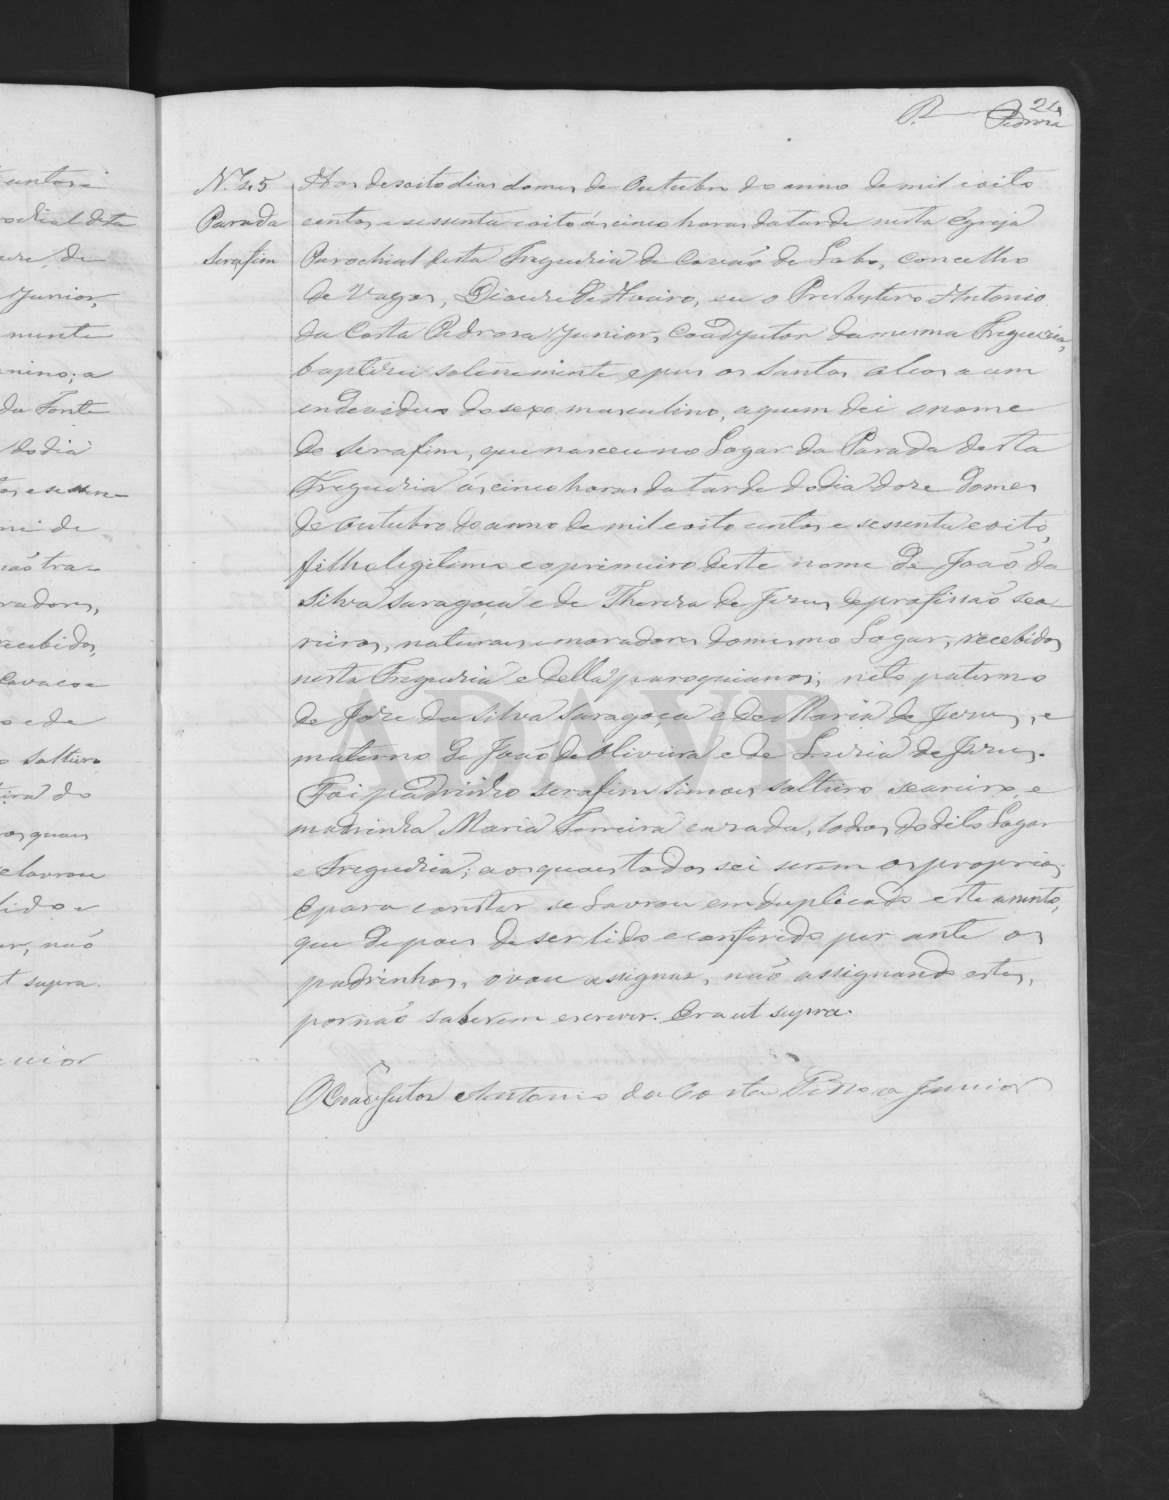 24
R. Pedroza
N.º 45
Parada
Serafim
Aos desoito dias do mes de Outubro do anno de mil e oito
centos e sessenta e oito ás cinco horas da tarde nesta Egreja
Parochial desta Freguezia de Covão do Lobo, concelho
de Vagos, Diocese de Aveiro, eu o Presbytero Antonio
da Costa Pedroza Junior, Coadjutor da mesma Freguezia,
baptizei solenemente e pus os Santos oleos a um
individuo do sexo masculino, a quem dei o nome
de Serafim, que nasceu no Logar da Parada desta
Freguezia ás cinco horas da tarde do dia doze do mes
de Outubro do anno de mil e oito centos e sessenta e oito,
filho legitimo e o primeiro deste nome de João da
Silva Saragoça e de Thereza de Jezus, de profissão sea-
reiros, naturaes e moradores do mesmo Logar, recebidos
nesta Freguezia e della paroquianos; neto paterno
de Joze da Silva Saragoça e de Maria de Jezus, e
materno de João de Oliveira e de Luzia de Jezus.
Foi padrinho Serafim Simoes solteiro seareiro, e
madrinha Maria Ferreira cazada, todos do dito Logar
e Freguezia; aos quaes todos sei serem os proprios.
E para constar se Lavrou em duplicado este assento,
que depois de ser lido e conferido per ante os
padrinhos, o vou assignar, não assignando estes,
por não saberem escrever. Era ut supra.
O Coadjutor Antonio da Costa Pedroza Junior
ADAVR